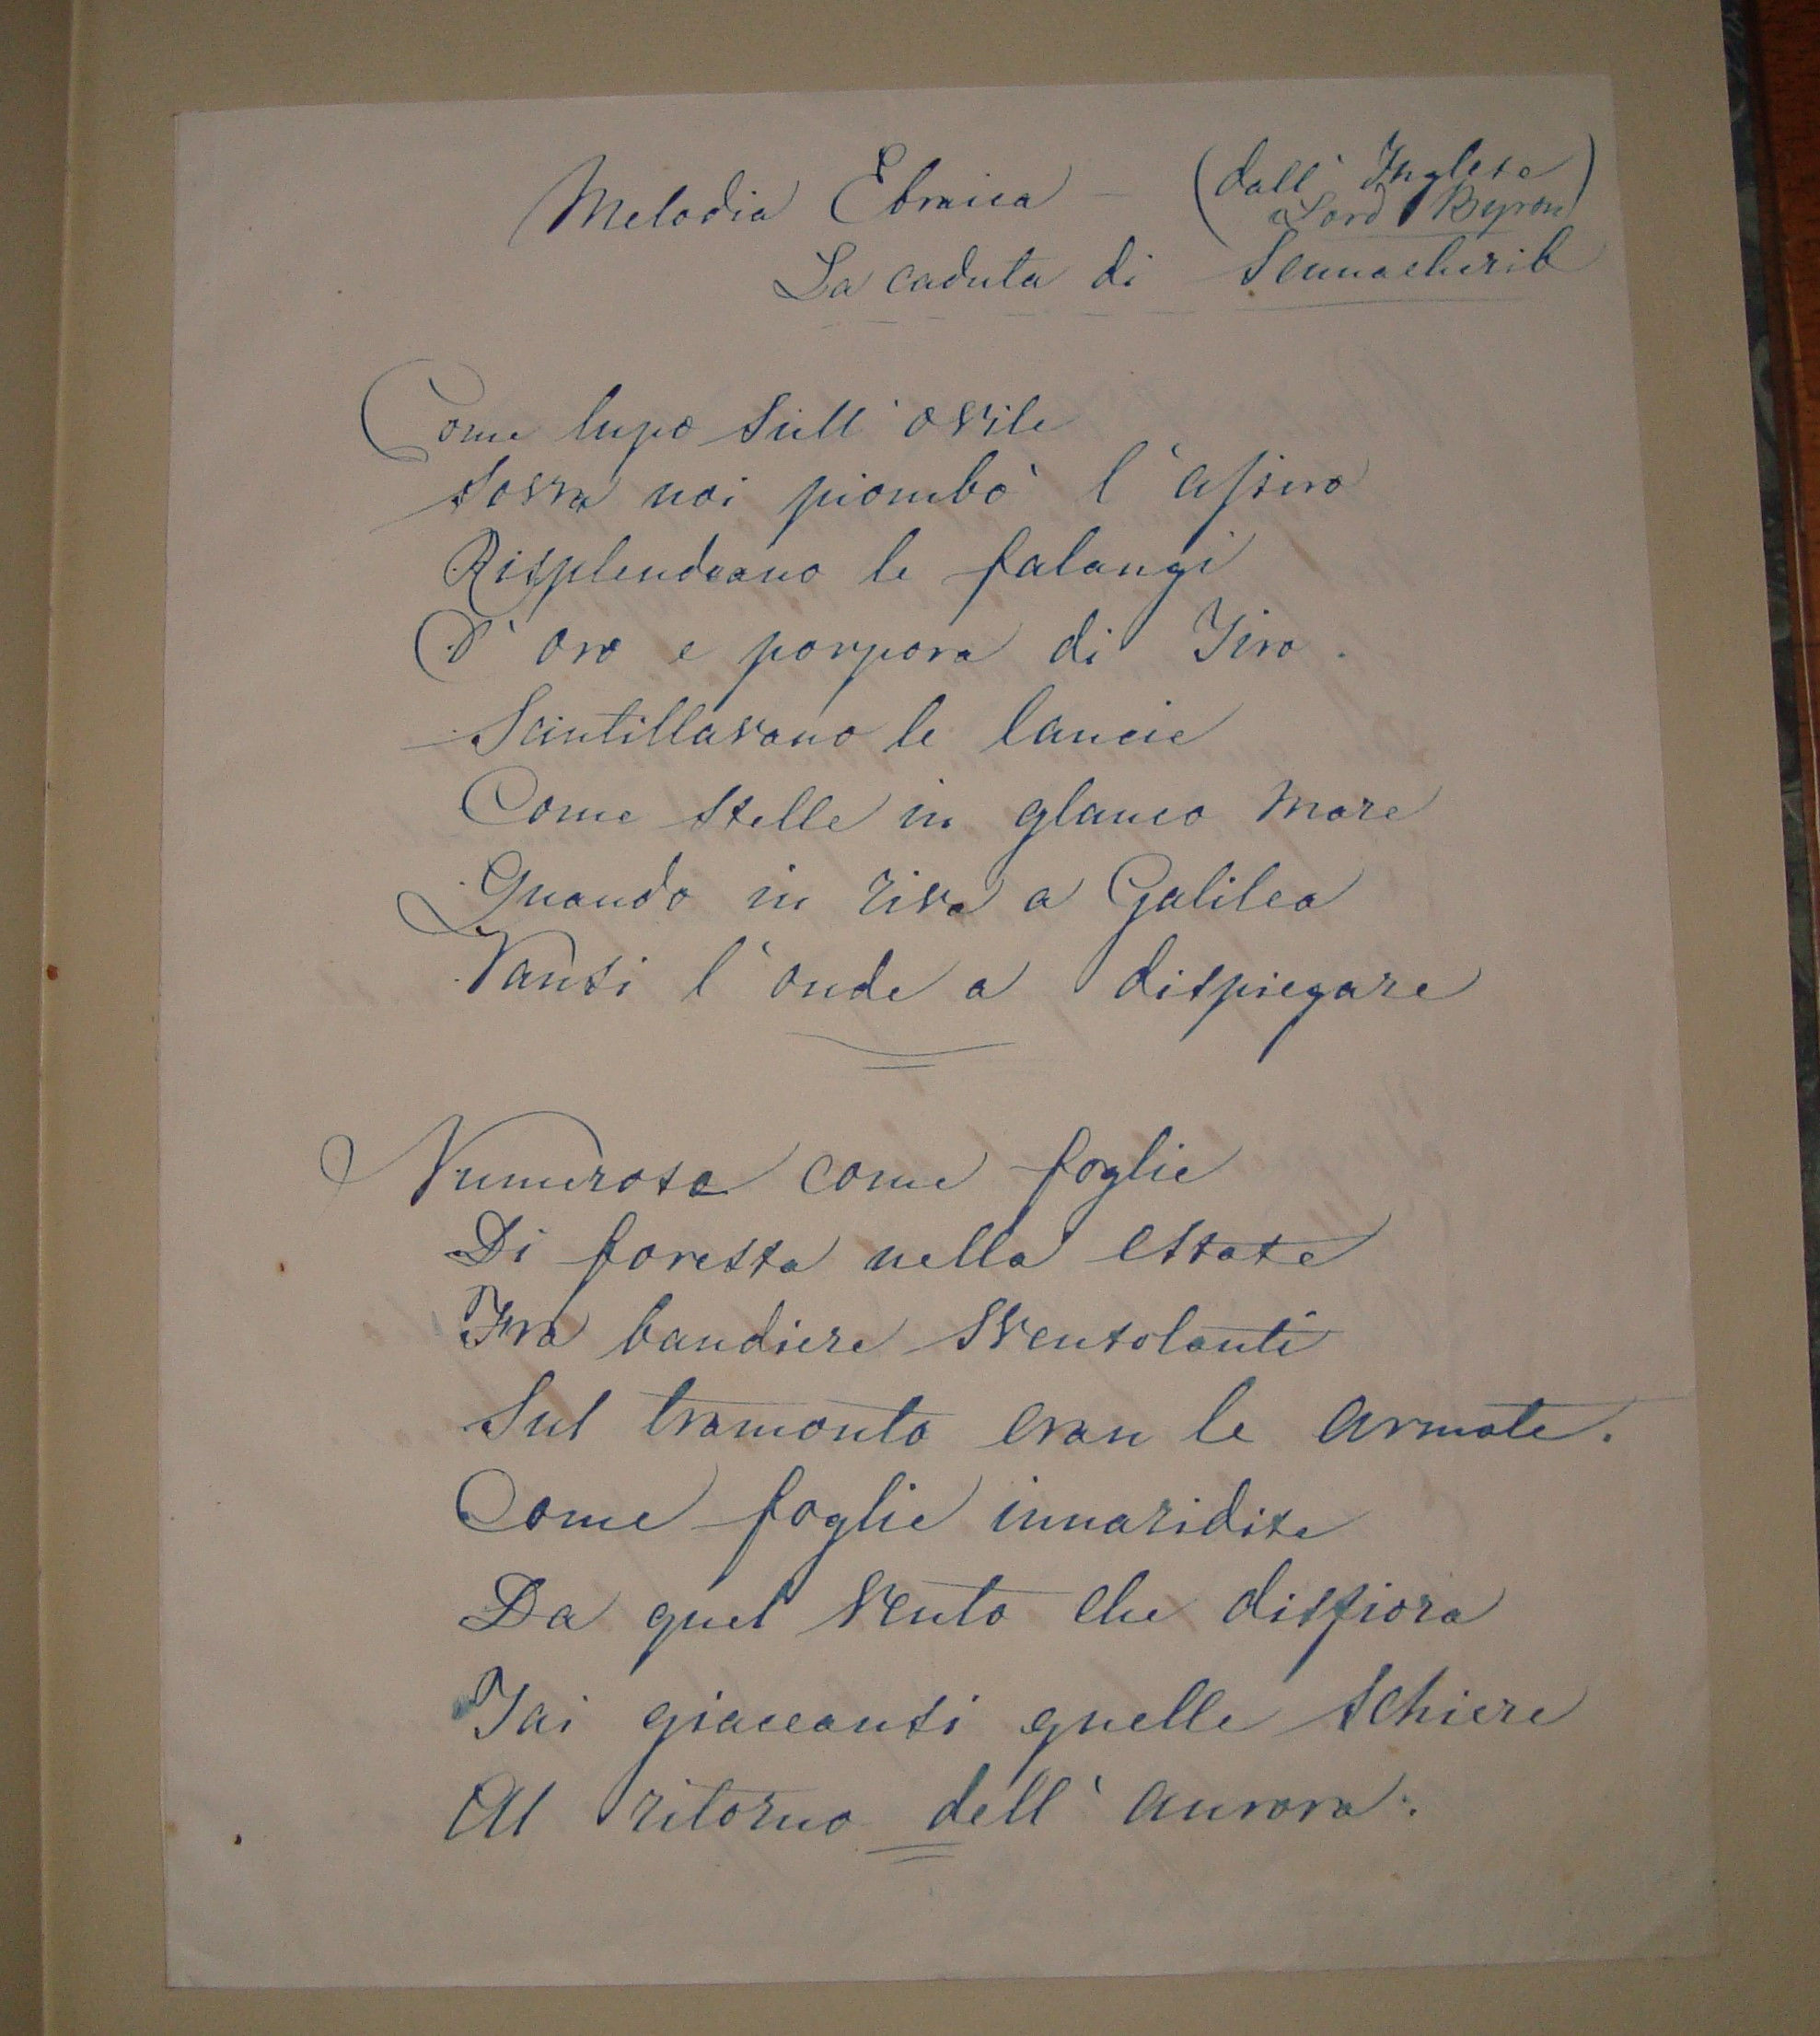 Melodia Ebraica – (dall' Inglese
Lord Byron)
La caduta di Sennacherib
Come lupo sull' ovile
Sovra noi piombò l' assiro
Risplendeano le falangi
D' oro e porpora di Tiro.
Scintillavano le lancie
Come stelle in glauco mare
Quando in riva a Galilea
Vansi l' onde a dispiegare
Numerose come foglie
Di foresta nella estate
Fra bandiere sventolanti
Sul tramonto eran le armate.
Come foglie innaridite
Da quel vento che disfiora
Tai giaceansi quelle schiere
Al ritorno dell' aurora.